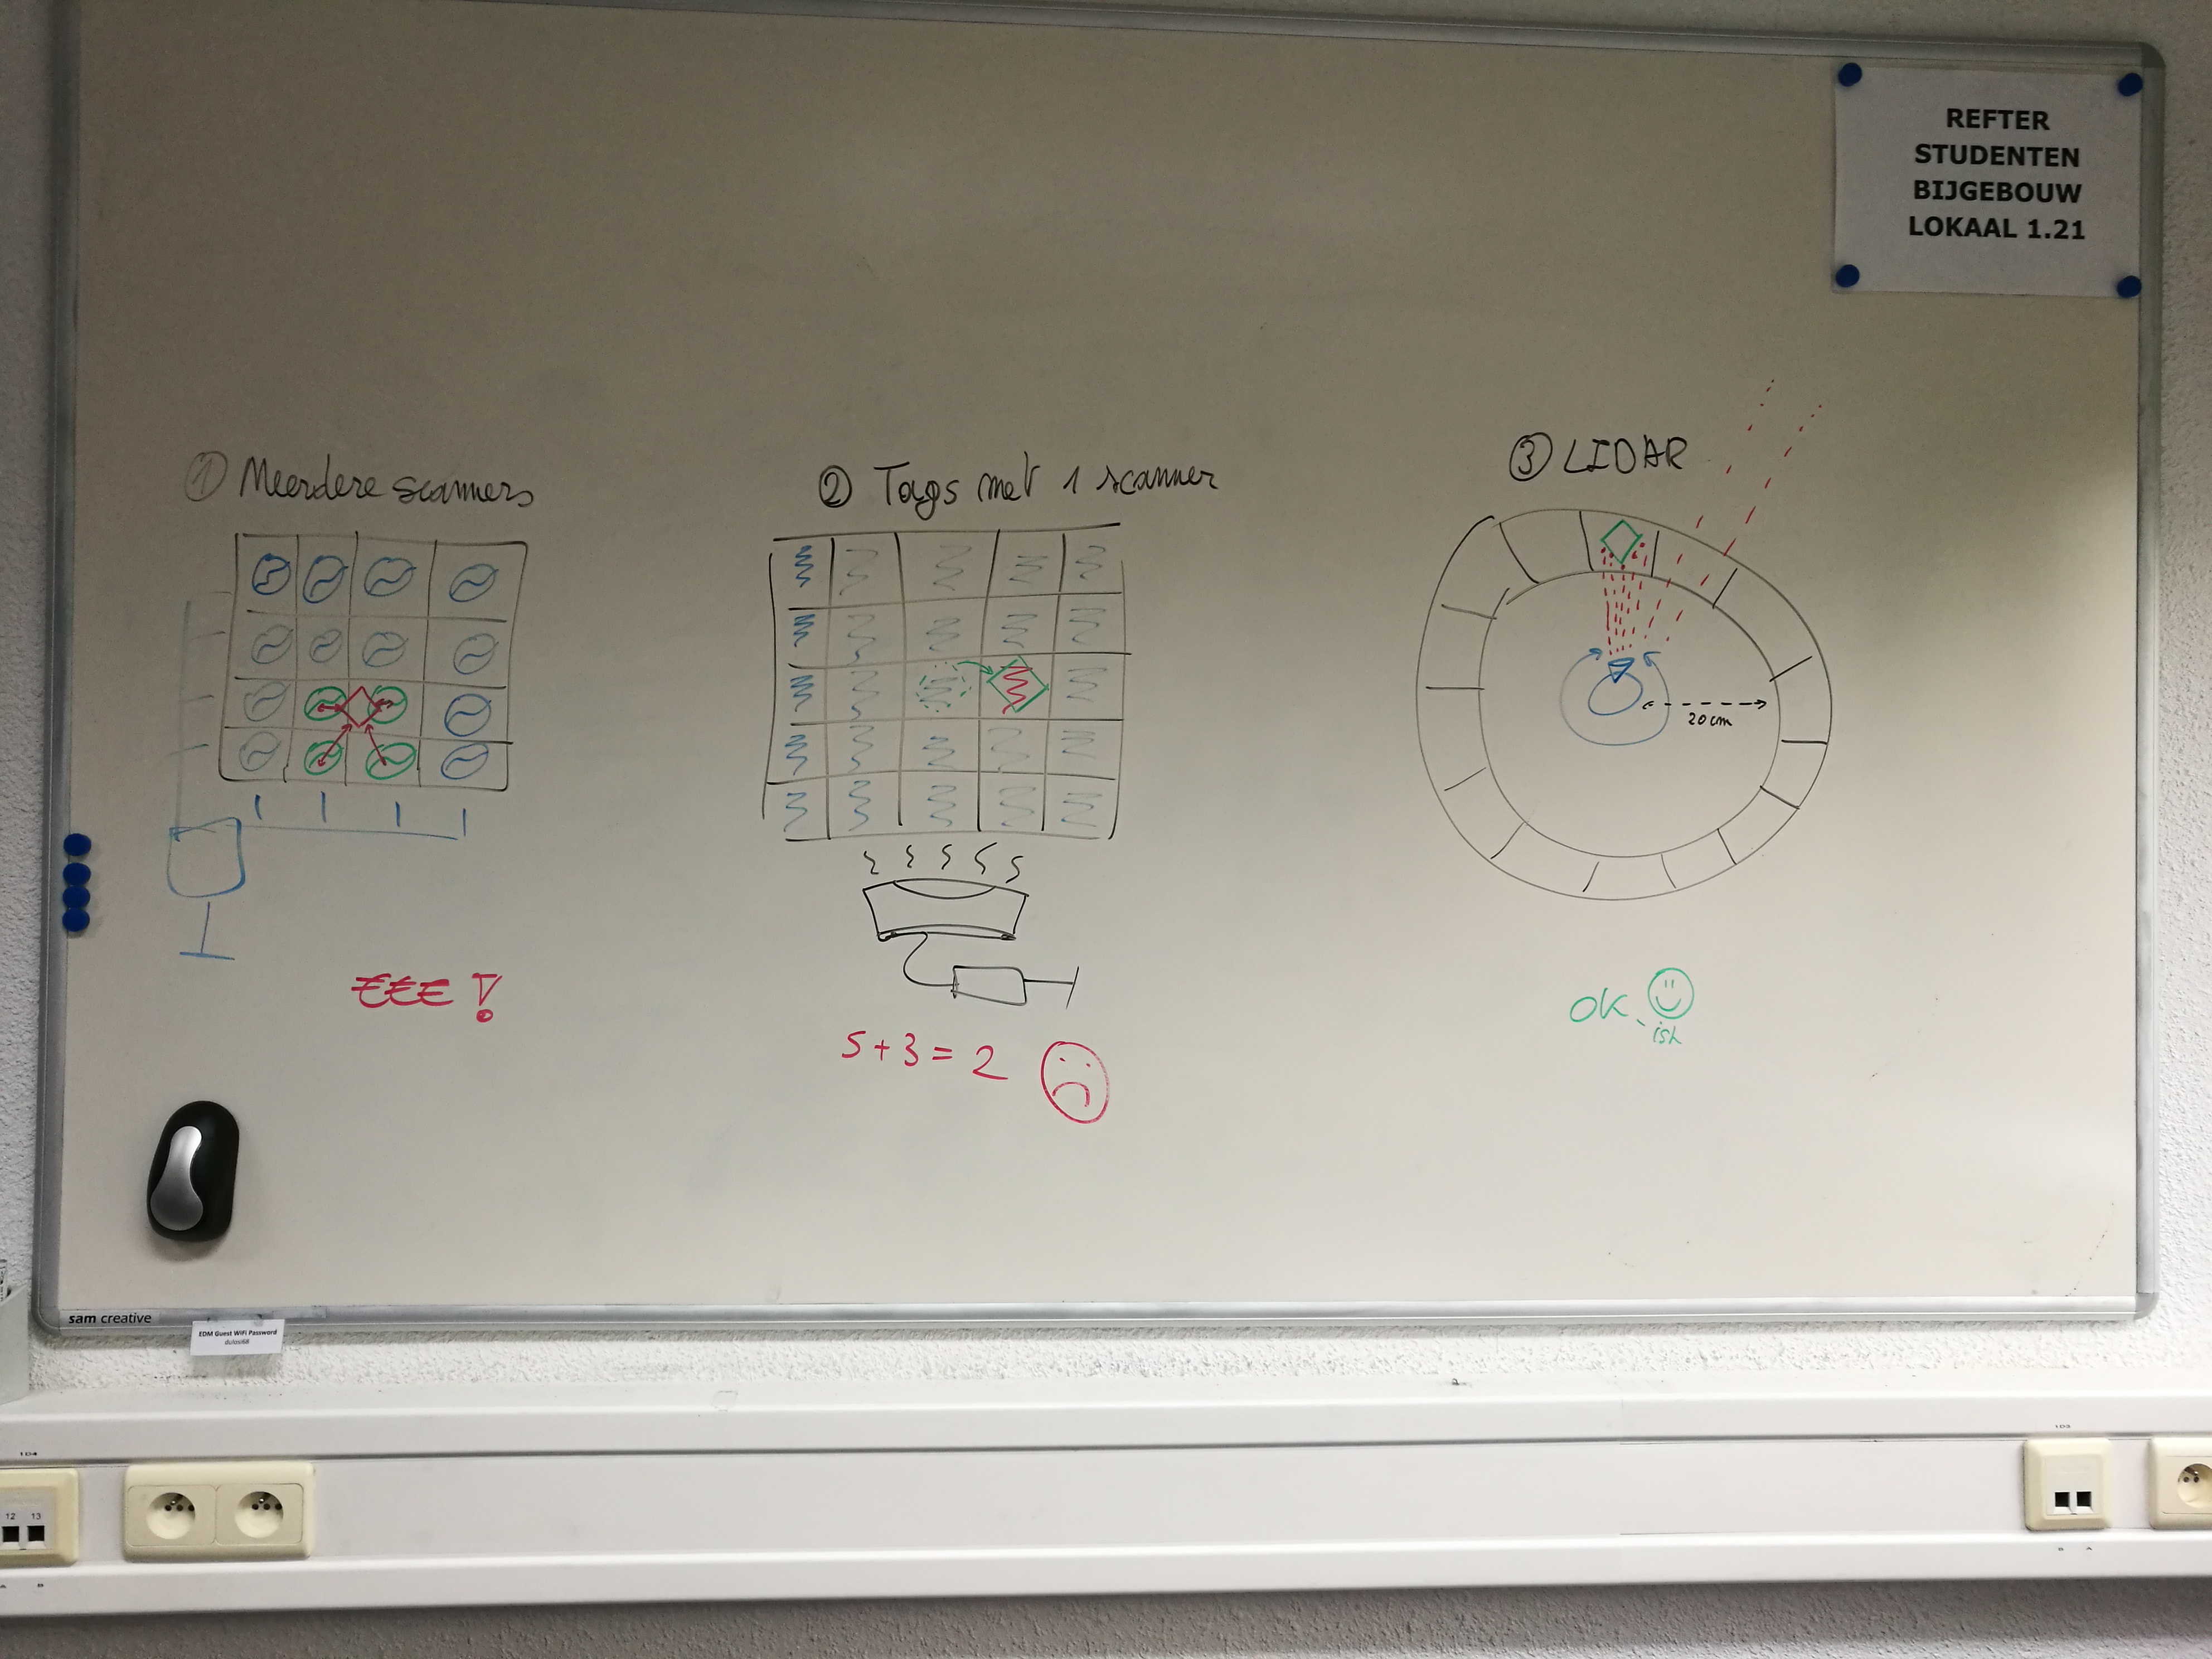 REFTER
STUDENTEN
BIJGEBOUW
LOKAAL 1.21
① Meerdere scanners
② Tags met 1 scanner
③ LIDAR
20 cm
€€€ !
5 + 3 = 2
OK
ish
sam creative
EDM Guest WiFi Password
1D4
1D3
12 13
A B
B A